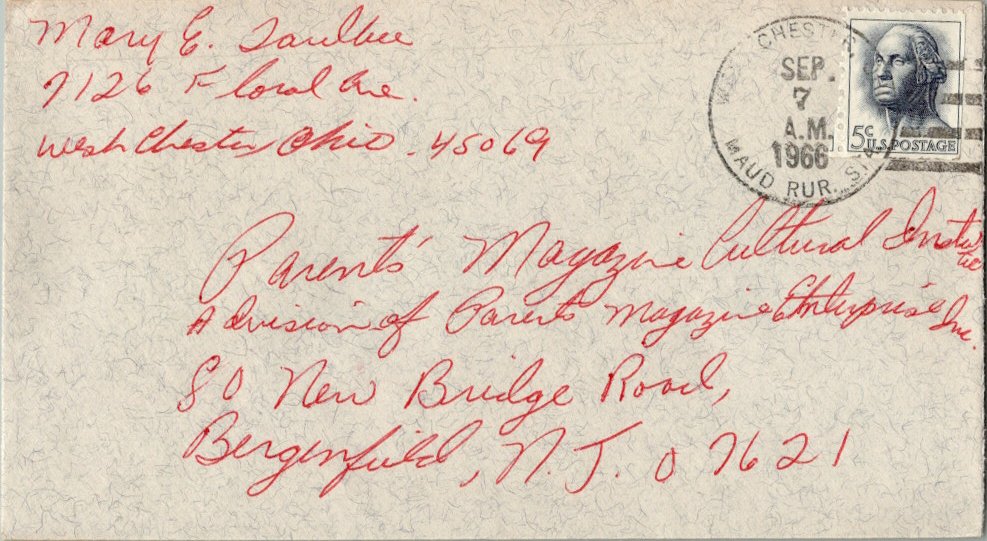 Mary E. Saulbee
7126 Floral Ave.
West Chester, Ohio. 45069
WEST CHESTER
SEP.
7
A.M.
1966
MAUD RUR. STA.
5c
U.S. POSTAGE
Parents' Magazine Cultural Institute
A division of Parents Magazine Enterprise Inc.
80 New Bridge Road,
Bergenfield, N.J. 07621